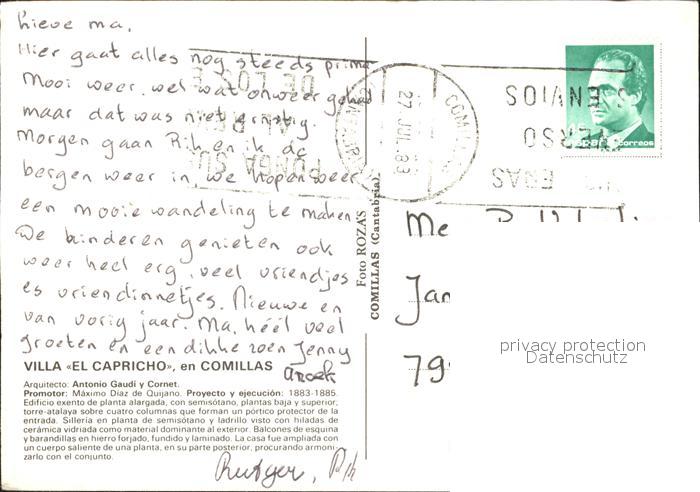 Lieve ma,
Hier gaat alles nog steeds prima
Mooi weer. wel wat onweer gehad
maar dat was niet ernstig.
Morgen gaan Rik en ik de
bergen weer in we hopen weer
een mooie wandeling te maken.
De kinderen genieten ook
weer heel erg. veel vriendjes
es vriendinnetjes. Nieuwe en
van vorig jaar. Ma, héél veel
groeten en een dikke zoen Jenny
Rutger,
VILLA «EL CAPRICHO», en COMILLAS
Arquitecto: Antonio Gaudí y Cornet.
Promotor: Máximo Díaz de Quijano. Proyecto y ejecución: 1883-1885.
Edificio exento de planta alargada, con semisótano, plantas baja y superior;
torre-atalaya sobre cuatro columnas que forman un pórtico protector de la
entrada. Sillería en planta de semisótano y ladrillo visto con hiladas de
cerámica vidriada como material dominante al exterior. Balcones de esquina
y barandillas en hierro forjado, fundido y laminado. La casa fue ampliada con
un cuerpo saliente de una planta, en su parte posterior, procurando armoni-
zarlo con el conjunto.
Foto ROZAS
COMILLAS (Cantabria).
COMILLAS
27 JUL 83
PONGA SU
DE LOS E
ENVIOS
correos
Me
Jan
79
privacy protection
Datenschutz